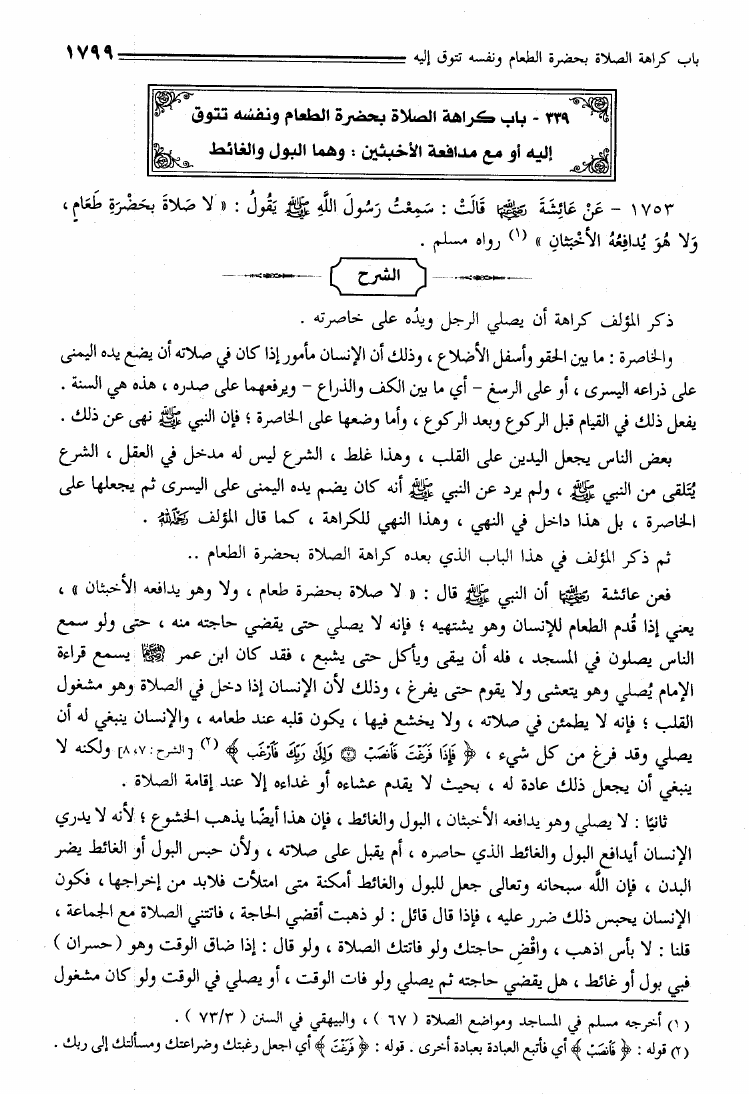 باب كراهة الصلاة بحضرة الطعام ونفسه تتوق إليه ١٧٩٩
٣٣٩ - باب كراهة الصلاة بحضرة الطعام ونفسه تتوق
إليه أو مع مدافعة الأخبثين : وهما البول والغائط
١٧٥٣ - عَنْ عَائِشَةَ رضي الله عنها قَالَتْ : سَمِعْتُ رَسُولَ اللَّهِ ﷺ يَقُولُ : « لا صَلاةَ بِحَضْرَةِ طَعَامٍ ،
وَلا هُوَ يُدَافِعُهُ الأَخْبَثَانِ » (١) رواه مسلم .
الشرح
ذكر المؤلف كراهة أن يصلي الرجل ويدُه على خاصرته .
والخاصرة : ما بين الحقو وأسفل الأضلاع ، وذلك أن الإنسان مأمور إذا كان في صلاته أن يضع يده اليمنى
على ذراعه اليسرى ، أو على الرسغ – أي ما بين الكف والذراع – ويرفعهما على صدره ، هذه هي السنة .
يفعل ذلك في القيام قبل الركوع وبعد الركوع ، وأما وضعها على الخاصرة ؛ فإن النبي ﷺ نهى عن ذلك .
بعض الناس يجعل اليدين على القلب ، وهذا غلط ، الشرع ليس له مدخل في العقل ، الشرع
يُتَلقى من النبي ﷺ ، ولم يرد عن النبي ﷺ أنه كان يضم يده اليمنى على اليسرى ثم يجعلها على
الخاصرة ، بل هذا داخل في النهي ، وهذا النهي للكراهة ، كما قال المؤلف رحمه الله .
ثم ذكر المؤلف في هذا الباب الذي بعده كراهة الصلاة بحضرة الطعام ..
فعن عائشة رضي الله عنها أن النبي ﷺ قال : « لا صلاة بحضرة طعام ، ولا وهو يدافعه الأخبثان » ،
يعني إذا قُدم الطعام للإنسان وهو يشتهيه ؛ فإنه لا يصلي حتى يقضي حاجته منه ، حتى ولو سمع
الناس يصلون في المسجد ، فله أن يبقى ويأكل حتى يشبع ، فقد كان ابن عمر رضي الله عنهما يسمع قراءة
الإمام يُصلي وهو يتعشى ولا يقوم حتى يفرغ ، وذلك لأن الإنسان إذا دخل في الصلاة وهو مشغول
القلب ؛ فإنه لا يطمئن في صلاته ، ولا يخشع فيها ، يكون قلبه عند طعامه ، والإنسان ينبغي له أن
يصلي وقد فرغ من كل شيء ، ﴿ فَإِذَا فَرَغْتَ فَٱنصَبْ ۝ وَإِلَىٰ رَبِّكَ فَٱرْغَب ﴾ (٢) [الشرح : ٧، ٨] ولكنه لا
ينبغي أن يجعل ذلك عادة له ، بحيث لا يقدم عشاءه أو غداءه إلا عند إقامة الصلاة .
ثانيًا : لا يصلي وهو يدافعه الأخبثان ، البول والغائط ، فإن هذا أيضًا يذهب الخشوع ؛ لأنه لا يدري
الإنسان أيدافع البول والغائط الذي حاصره ، أم يقبل على صلاته ، ولأن حبس البول أو الغائط يضر
البدن ، فإن اللَّه سبحانه وتعالى جعل للبول والغائط أمكنة متى امتلأت فلابد من إخراجها ، فكون
الإنسان يحبس ذلك ضرر عليه ، فإذا قال قائل : لو ذهبت أقضي الحاجة ، فاتتني الصلاة مع الجماعة ،
قلنا : لا بأس اذهب ، واقْضِ حاجتك ولو فاتتك الصلاة ، ولو قال : إذا ضاق الوقت وهو ( حسران )
فبي بول أو غائط ، هل يقضي حاجته ثم يصلي ولو فات الوقت ، أو يصلي في الوقت ولو كان مشغول
(١) أخرجه مسلم في المساجد ومواضع الصلاة ( ٦٧ ) ، والبيهقي في السنن ( ٧٣/٣ ) .
(٢) قوله : ﴿ فَٱنصَبْ ﴾ أي فأتبع العبادة بعبادة أخرى . قوله : ﴿ فَرَغْتَ ﴾ أي اجعل رغبتك وضراعتك ومسألتك إلى ربك .